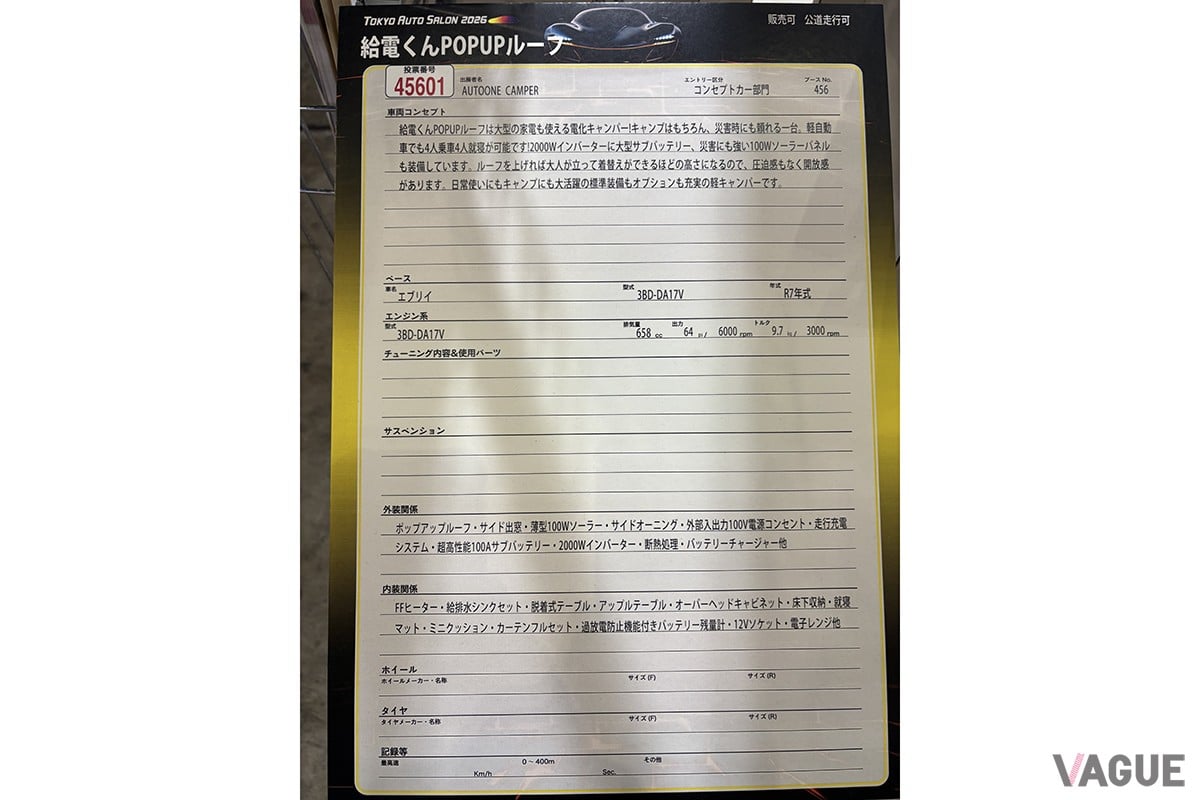 TOKYO AUTO SALON 2026
販売可 公道走行可
給電くんPOPUPルーフ
投票番号
45601
出展者名
AUTOONE CAMPER
エントリー区分
コンセプトカー部門
ブース No.
456
車両コンセプト
給電くんPOPUPルーフは大型の家電も使える電化キャンパー!キャンプはもちろん、災害時にも頼れる一台。軽自動
車でも4人乗車4人就寝が可能です!2000Wインバーターに大型サブバッテリー、災害にも強い100Wソーラーパネル
も装備しています。ルーフを上げれば大人が立って着替えができるほどの高さになるので、圧迫感もなく開放感
があります。日常使いにもキャンプにも大活躍の標準装備もオプションも充実の軽キャンパーです。
ベース
車名
エブリイ
型式
3BD-DA17V
年式
R7年式
エンジン系
型式
3BD-DA17V
排気量
658 cc
出力
64 ps/ 6000 rpm
トルク
9.7 kg/ 3000 rpm
チューニング内容&使用パーツ
サスペンション
外装関係
ポップアップルーフ・サイド出窓・薄型100Wソーラー・サイドオーニング・外部入出力100V電源コンセント・走行充電
システム・超高性能100Aサブバッテリー・2000Wインバーター・断熱処理・バッテリーチャージャー他
内装関係
FFヒーター・給排水シンクセット・脱着式テーブル・アップルテーブル・オーバーヘッドキャビネット・床下収納・就寝
マット・ミニクッション・カーテンフルセット・過放電防止機能付きバッテリー残量計・12Vソケット・電子レンジ他
ホイール
ホイールメーカー・名称
サイズ(F)
サイズ(R)
タイヤ
タイヤメーカー・名称
サイズ(F)
サイズ(R)
記録等
最高速
Km/h
0～400m
Sec.
その他
VAGUE